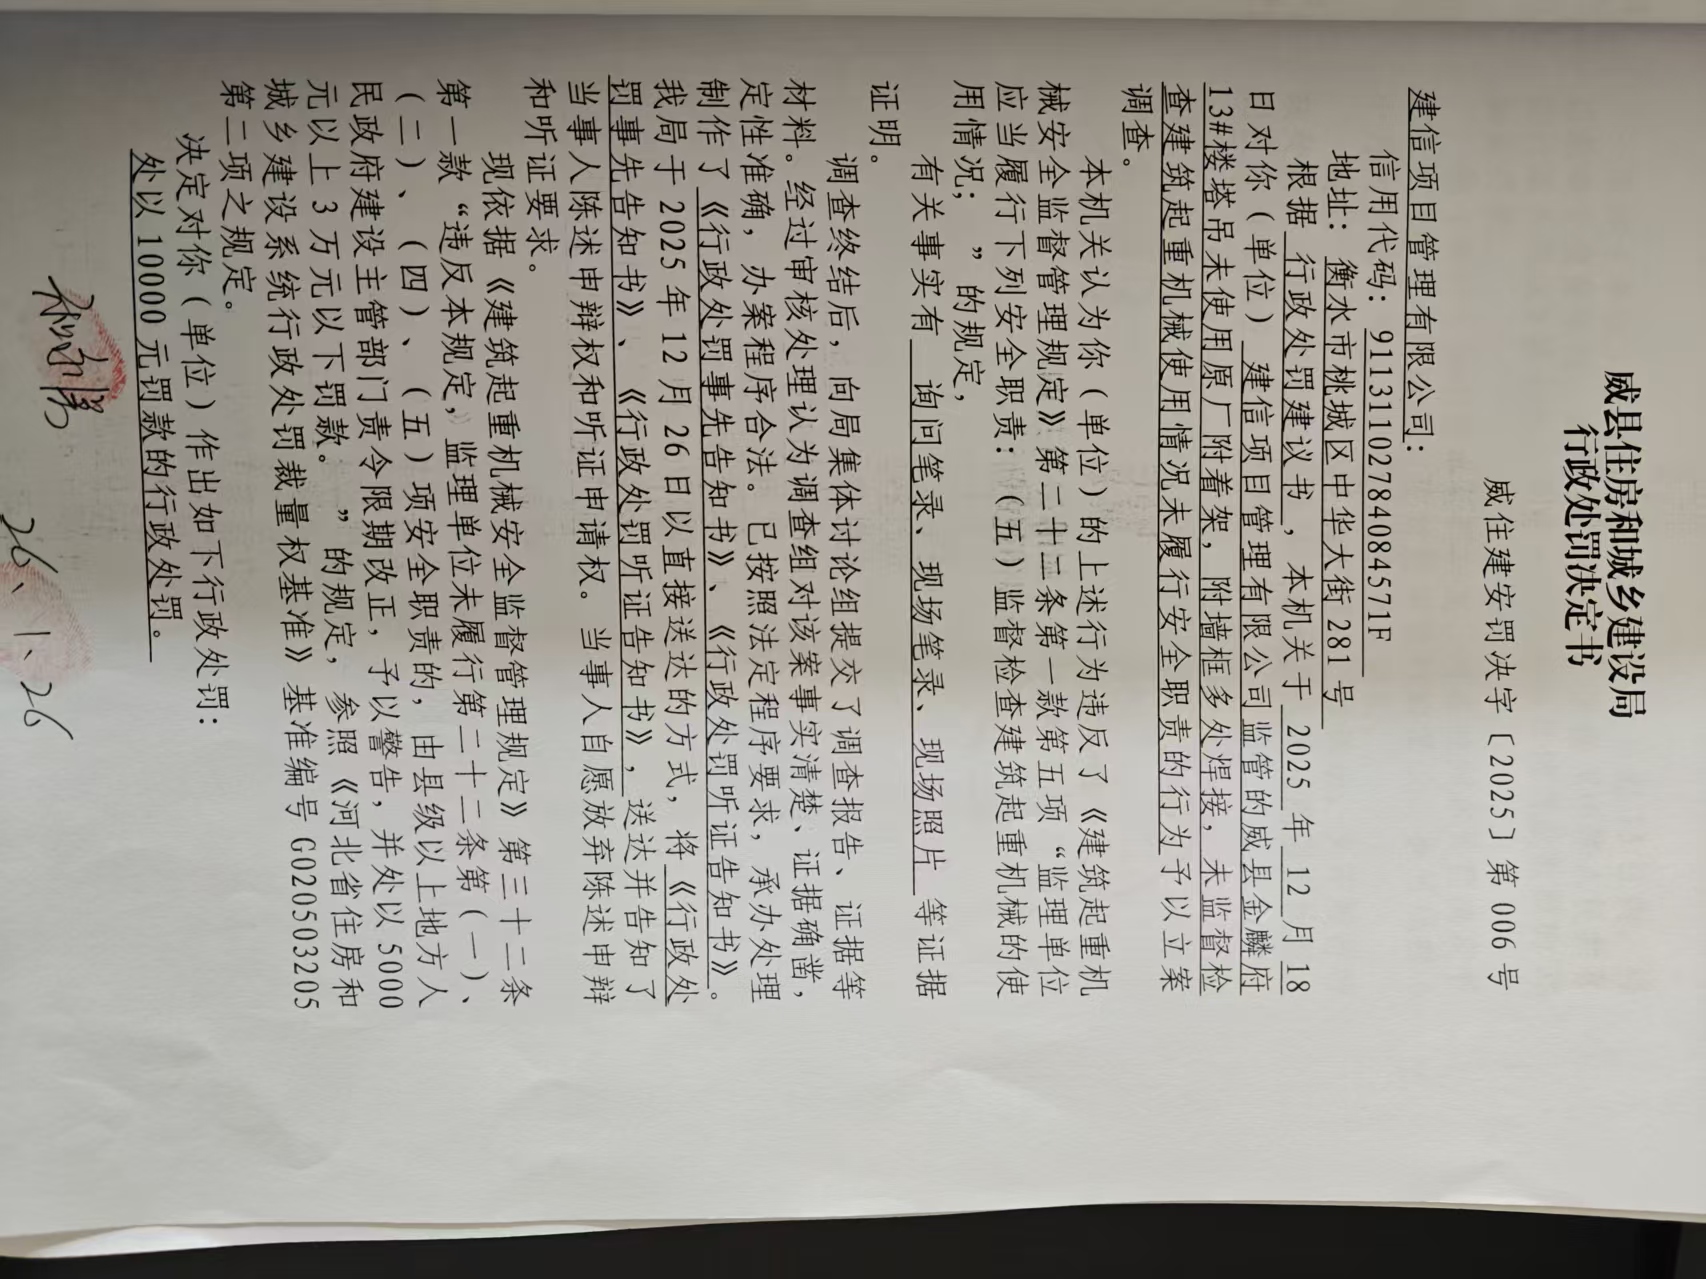 威县住房和城乡建设局
行政处罚决定书
威住建安罚决字〔2025〕第 006 号
建信项目管理有限公司：
信用代码：91131102784084571F
地址：衡水市桃城区中华大街 281 号
根据 行政处罚建议书 ，本机关于 2025 年 12 月 18
日对你（单位） 建信项目管理有限公司监管的威县金麟府
13#楼塔吊未使用原厂附着架，附墙框多处焊接，未监督检
查建筑起重机械使用情况未履行安全职责的行为予以立案
调查。
本机关认为你（单位）的上述行为违反了《建筑起重机
械安全监督管理规定》第二十二条第一款第五项 “监理单位
应当履行下列安全职责：（五）监督检查建筑起重机械的使
用情况； ”的规定，
有关事实有 询问笔录、现场笔录、现场照片 等证据
证明。
调查终结后，向局集体讨论组提交了调查报告、证据等
材料。经过审核处理认为调查组对该案事实清楚、证据确凿，
定性准确，办案程序合法。已按照法定程序要求，承办处理
制作了《行政处罚事先告知书》、《行政处罚听证告知书》。
我局于 2025 年 12 月 26 日以直接送达的方式，将《行政处
罚事先告知书》、《行政处罚听证告知书》，送达并告知了
当事人陈述申辩权和听证申请权。当事人自愿放弃陈述申辩
和听证要求。
现依据《建筑起重机械安全监督管理规定》第三十二条
第一款 “违反本规定，监理单位未履行第二十二条第（一）、
（二）、（四）、（五）项安全职责的，由县级以上地方人
民政府建设主管部门责令限期改正，予以警告，并处以 5000
元以上 3 万元以下罚款。 ”的规定，参照《河北省住房和
城乡建设系统行政处罚裁量权基准》基准编号 G020503205
第二项之规定。
决定对你（单位）作出如下行政处罚：
处以 10000 元罚款的行政处罚。
26、1、26